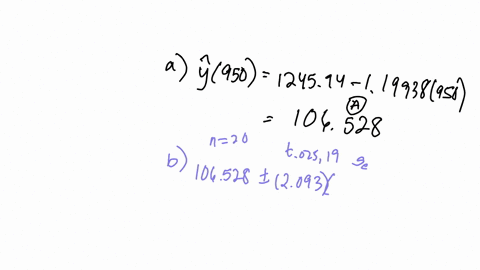 a) ŷ(950) = 1245.94 - 1.19938(950)
= 106.528
(A)
n=20 t.025,19 se
b) 106.528 ± (2.093)(